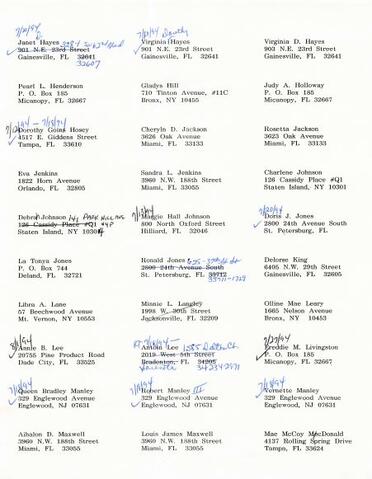 7/21/94
Janet Hayes
901 N.E. 23rd Street
Gainesville, FL 32641
32607
7/21/94 Dorothy
Virginia Hayes
901 N.E. 23rd Street
Gainesville, FL 32641
Virginia D. Hayes
903 N.E. 23rd Street
Gainesville, FL 32641
Pearl L. Henderson
P. O. Box 185
Micanopy, FL 32667
Gladys Hill
710 Tinton Avenue, #11C
Bronx, NY 10455
Judy A. Holloway
P. O. Box 185
Micanopy, FL 32667
Dorothy Goins Hosey
4517 E. Giddens Street
Tampa, FL 33610
Cheryln D. Jackson
3626 Oak Avenue
Miami, FL 33133
Rosetta Jackson
3623 Oak Avenue
Miami, FL 33133
Eva Jenkins
1822 Horn Avenue
Orlando, FL 32805
Sandra L. Jenkins
3960 N.W. 188th Street
Miami, FL 33055
Charlene Johnson
126 Cassidy Place #Q1
Staten Island, NY 10301
Debra Johnson
126 Cassidy Place #Q1
Staten Island, NY
Maggie Hall Johnson
800 North Oxford Street
Hilliard, FL 32046
7/20/94
Doris J. Jones
2800 24th Avenue South
St. Petersburg, FL
La Tonya Jones
P. O. BOX 744
Deland, FL 32721
Ronald Jones
2800 24th Avenue South
St. Petersburg, FL 33712
Delorse King
6405 N.W. 29th Street
Gainesville, FL 32605
Libra A. Lane
57 Beechwood Avenue
Mt. Vernon, NY 10553
Minnie L. Langley
1998 W. 30th Street
Jacksonville, FL 32209
Olline Mae Leary
1665 Nelson Avenue
Bronx, NY 10453
Annie B. Lee
20755 Pine Product Road
Dade City, FL 33525
Lee
2019 West 5th Street
Bradenton, FL 34205
7/27/94
Freddie M. Livingston
P. O. Box 185
Micanopy, FL 32667
Queen Bradley Manley
329 Englewood Avenue
Englewood, NJ 07631
Robert Manley III
329 Englewood Avenue
Englewood, NJ 07631
Manley
329 Englewood Avenue
Englewood, NJ 07631
Aihalon D. Maxwell
3960 N.W. 188th Street
Miami, FL 33055
Louis James Maxwell
3960 N.W. 188th Street
Miami, FL 33055
Mae McCoy MacDonald
4137 Rolling Spring Drive
Tampa, FL 33624